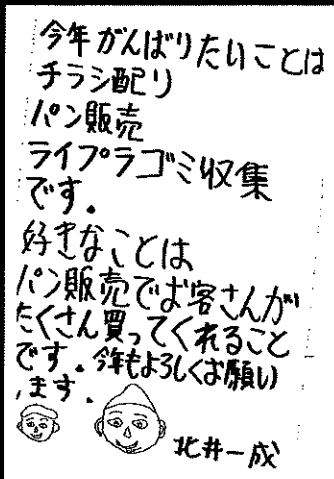 今年がんばりたいことは
チラシ配り
パン販売
ライプラゴミ収集
です。
好きなことは
パン販売でお客さんが
たくさん買ってくれること
です。今年もよろしくお願い
します。
北井一成